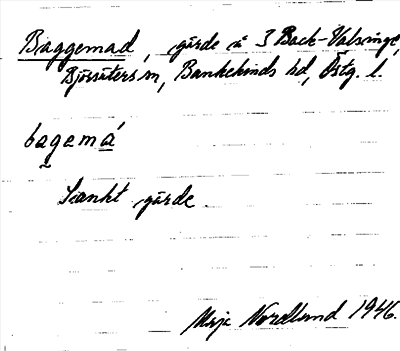 Baggemad, gärde å 3 Back-Valsinge,
Björsäters sn, Bankekinds hd, Östg. l.
bagemá
Sankt gärde.
Maja Nordlund 1946.